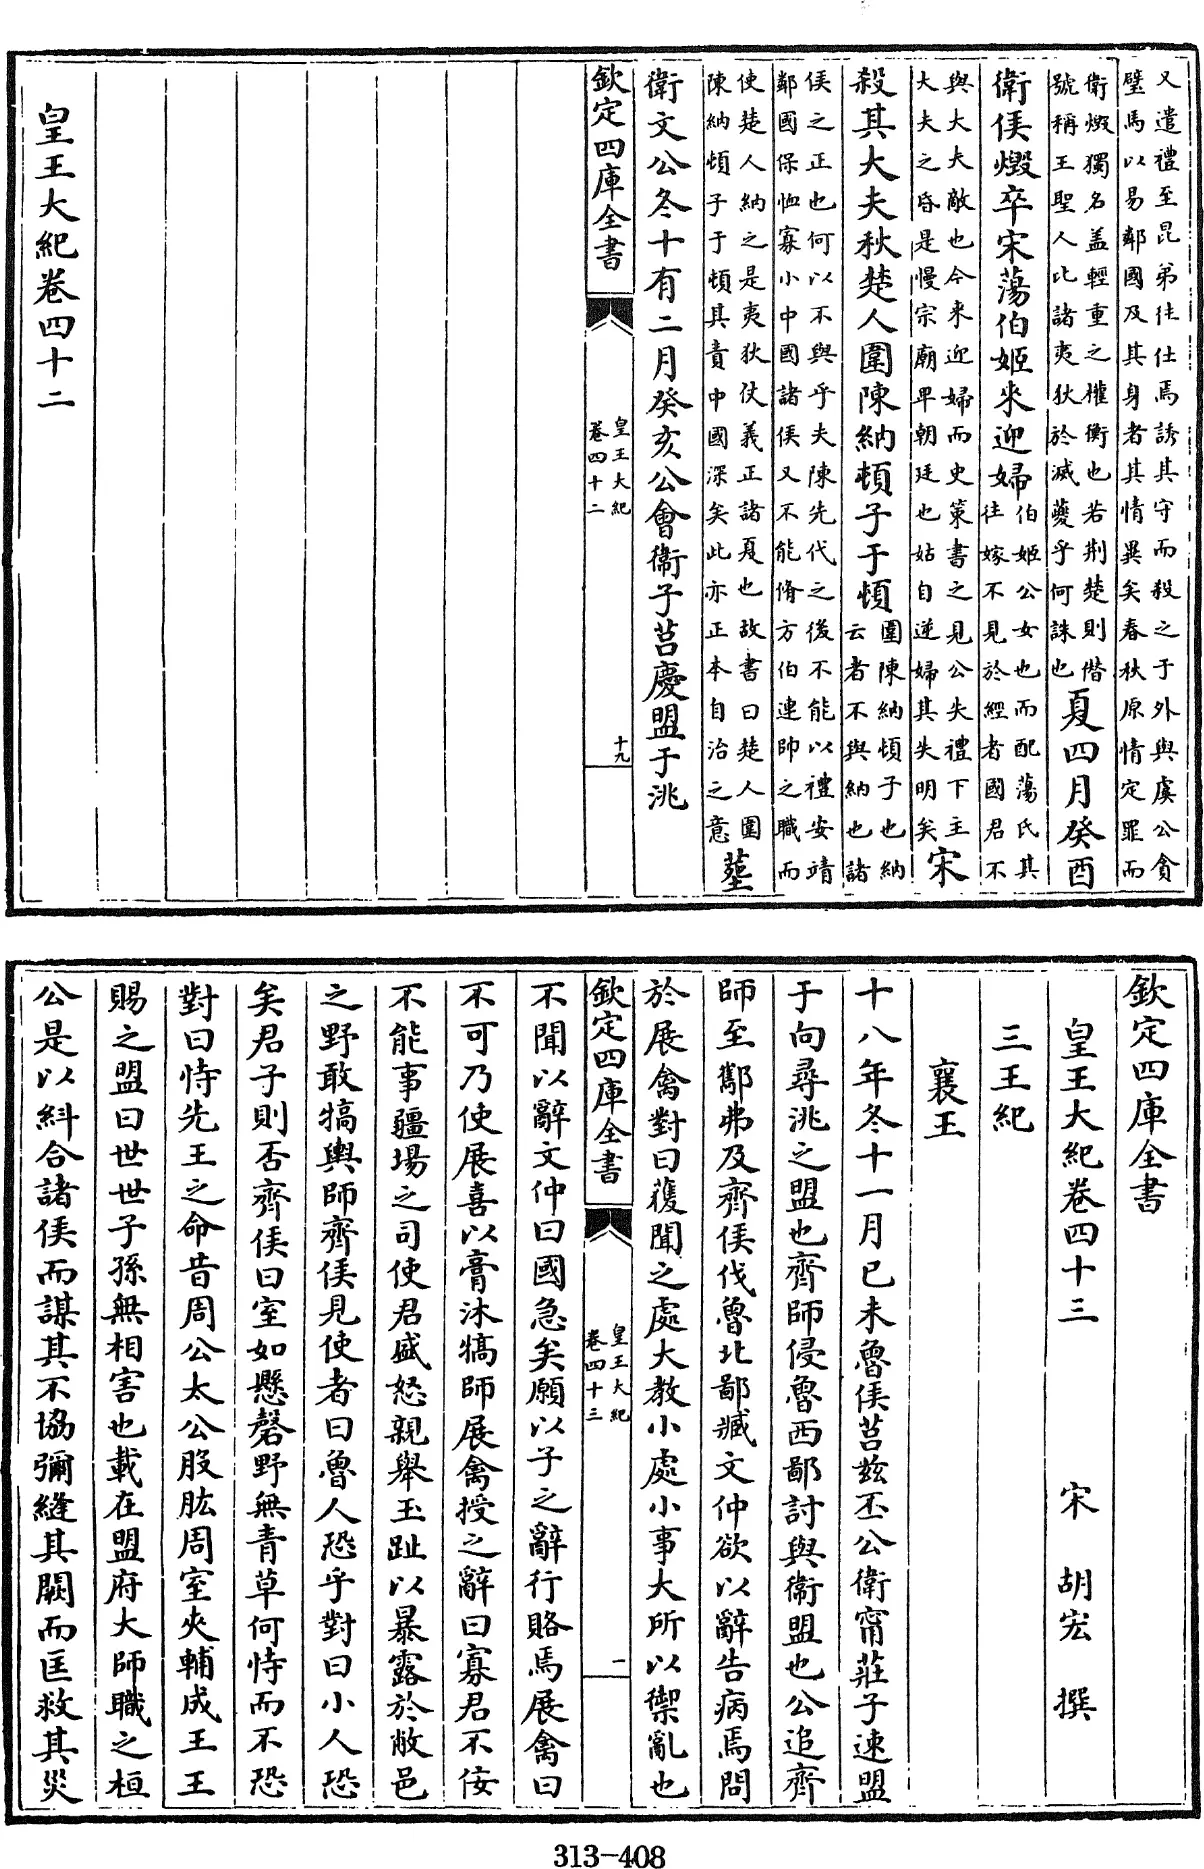 又遣禮至昆弟徃仕焉誘其守而殺之于外與虞公貪
璧馬以易鄰國及其身者其情異矣春秋原情定罪而
衛燬獨名盖輕重之權衡也若荆楚則僭
號稱王聖人比諸夷狄於滅夔乎何誅也
夏四月癸酉
衛侯燬卒宋蕩伯姬来迎婦
伯姬公女也而配蕩氏其
徃嫁不見於經者國君不
與大夫敵也今来迎婦而史策書之見公失禮下主
大夫之昏是慢宗廟卑朝廷也姑自逆婦其失明矣
宋
殺其大夫秋楚人圍陳納頓子于頓
圍陳納頓子也納
云者不與納也諸
侯之正也何以不與乎夫陳先代之後不能以禮安靖
鄰國保恤寡小中國諸侯又不能脩方伯連帥之職而
使楚人納之是夷狄仗義正諸夏也故書曰楚人圍
陳納頓子于頓其責中國深矣此亦正本自治之意
塟
衛文公冬十有二月癸亥公會衛子莒慶盟于洮
欽定四庫全書
皇王大紀
卷四十二
十九
皇王大紀卷四十二
欽定四庫全書
皇王大紀卷四十三 宋 胡宏 撰
三王紀
襄王
十八年冬十一月已未魯侯莒兹丕公衛甯莊子速盟
于向尋洮之盟也齊師侵魯西鄙討與衛盟也公追齊
師至酅弗及齊侯伐魯北鄙臧文仲欲以辭告病焉問
於展禽對曰獲聞之處大教小處小事大所以禦亂也
欽定四庫全書
皇王大紀
卷四十三
一
不聞以辭文仲曰國急矣願以子之辭行賂焉展禽曰
不可乃使展喜以膏沐犒師展禽授之辭曰寡君不佞
不能事疆場之司使君盛怒親舉玉趾以暴露於敝邑
之野敢犒輿師齊侯見使者曰魯人恐乎對曰小人恐
矣君子則否齊侯曰室如懸磬野無青草何恃而不恐
對曰恃先王之命昔周公太公股肱周室夾輔成王王
賜之盟曰世世子孫無相害也載在盟府大師職之桓
公是以糾合諸侯而謀其不協彌縫其闕而匡救其災
313-408